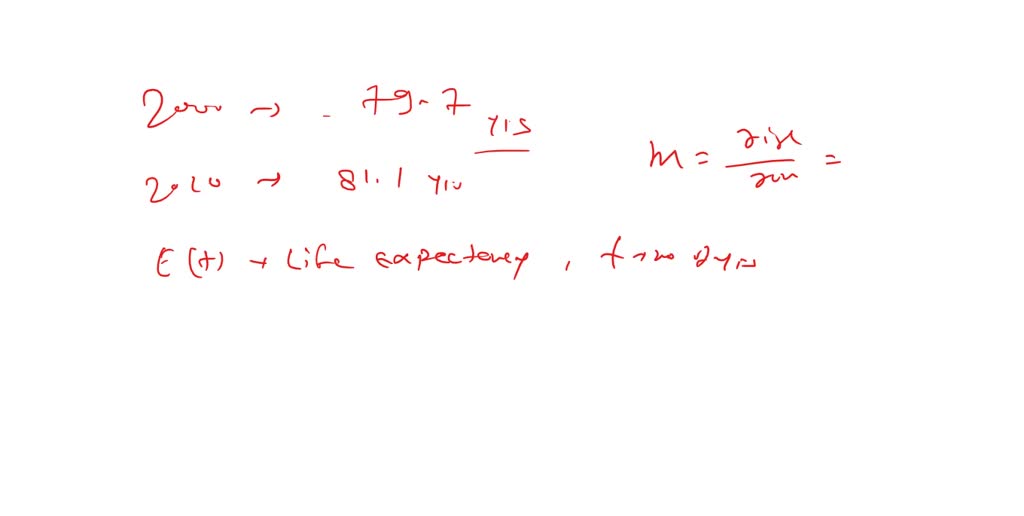 2000 → 79.7 yrs
m = rise/run =
2010 → 81.1 yrs
E(t) → Life expectancy, t → no of yrs